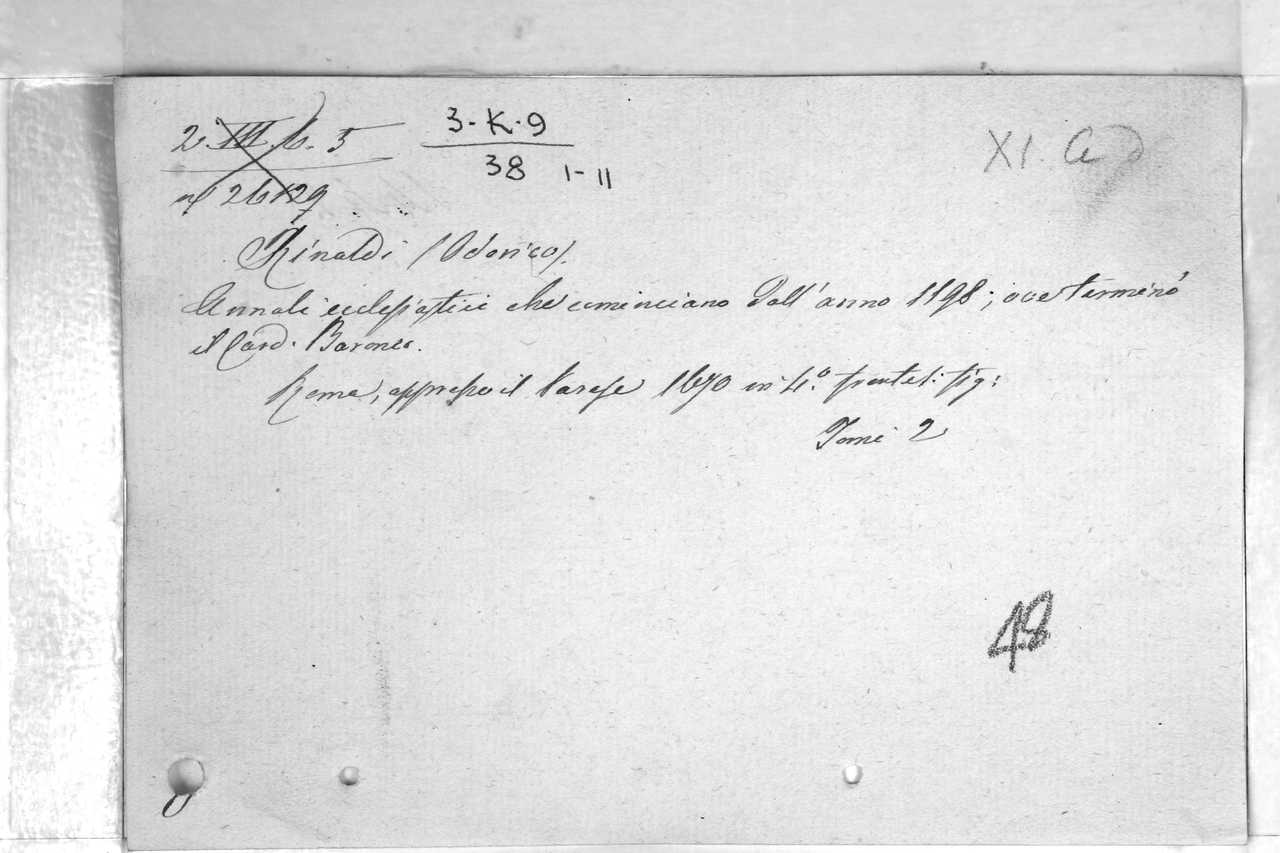 2. III. 6. 5
3-K-9
XI. C
38 I-II
nº 26129
Rinaldi (Odorico).
Annali ecclesiastici che cominciano dall'anno 1198; ove terminò
il Card. Baronio.
Roma, appresso il Varese 1670 in 4.º frontesp: fig:
Tomi 2
48